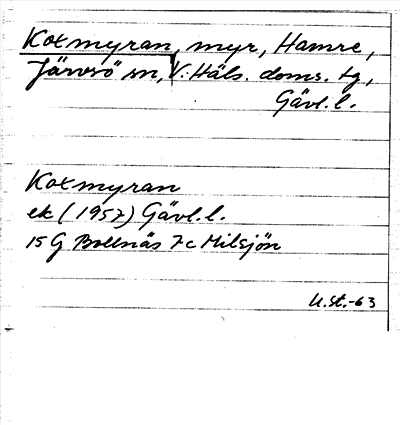 Kotmyran, myr, Hamre,
Järvsö sn, V. Häls. doms. tg,
Gävl. l.
Kotmyran
ek (1957) Gävl. l.
15 G Bollnäs 7c Milsjön
U.st.-63